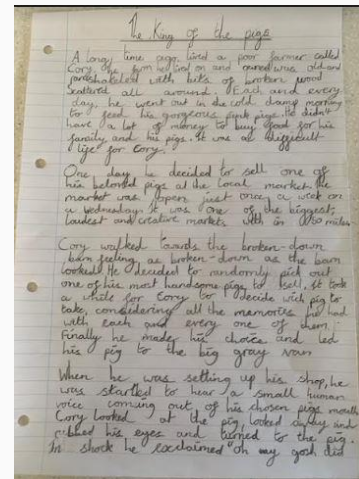 The King of the pigs
A long time ago, lived a poor farmer called
Cory, he farm he lived on and owned was old and
ramshackled with bits of broken wood
scattered all around. Each and every
day, he went out in the cold damp morning
to feed his gorgeous pink pigs. He didn't
have a lot of money to buy food for his
family and his pigs. It was a difficult
life for Cory.
One day he decided to sell one of
his beloved pigs at the local market. The
market was open just once a week on
a wednesday. It was one of the biggest,
loudest and creative markets with in a 50 miles
Cory walked towards the broken-down
barn feeling as broken-down as the barn
looked. He decided to randomly pick out
one of his most handsome pigs to sell. It took
a while for Cory to decide wich pig to
take, considering all the memories he had
with each and every one of them.
Finally he made his choice and led
his pig to the big gray van
When he was setting up his shop, he
was startled to hear a small human
voice coming out of his chosen pigs mouth
Cory looked at the pig, looked away and
rubbed his eyes and turned to the pig.
In shock he exclaimed "oh my gosh did